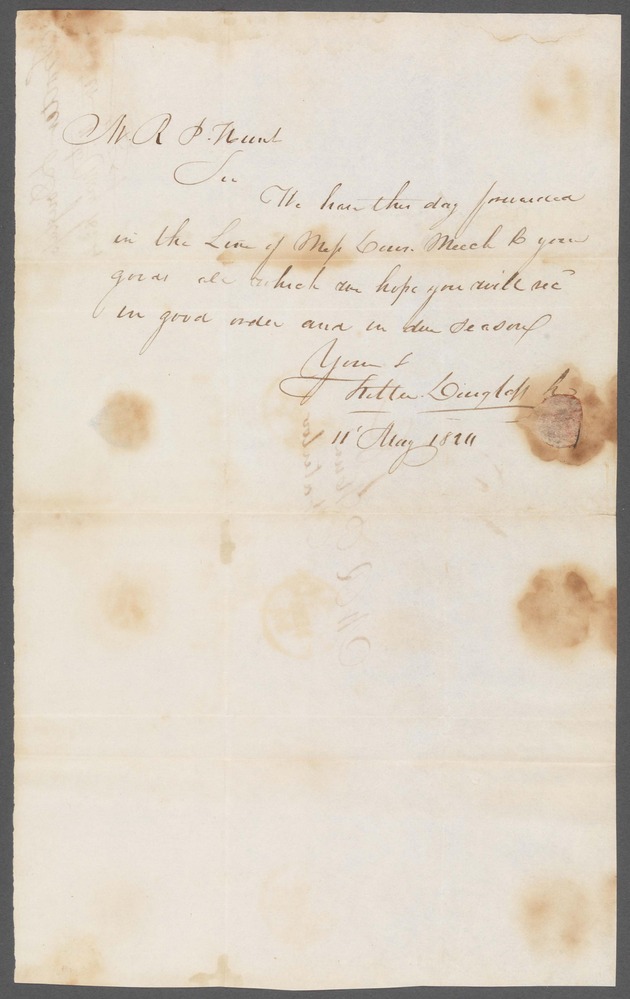 Mr R P. Hunt
Sir
We have this day forwarded
in the Line of Mess Meech & your
goods all which we hope you will rec
in good order and in due season
Yours &
11 May 1824